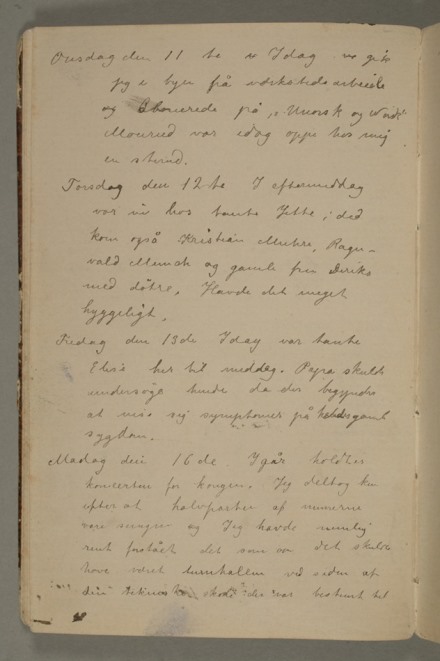 Onsdag den 11te Idag gik
jeg i byen frå værkstedsarbeide
og abonerede på „Unorsk og
Mourud var idag oppe hos mig
en stund.
Torsdag den 12te I eftermiddag
var vi hos tante Jette, did
kom også Kristian Munch, Ragn-
vald Munch og gamle fru Diriks
med døtre. Havde det meget
hyggeligt.
Fredag den 13de Idag var tante
Elise her til meddag. Papa skulde
undersøge hende da der begyndte
at vise sig symptomer på
sygdom.
Mandag den 16de. Igår holdtes
koncerten for kongen. Jeg deltog kun
efter at halvparten af numerne
vare sungne og Jeg havde nemlig
rent forstået det som om det skulde
have været turnhallen ved siden af
den skole der var bestemt til